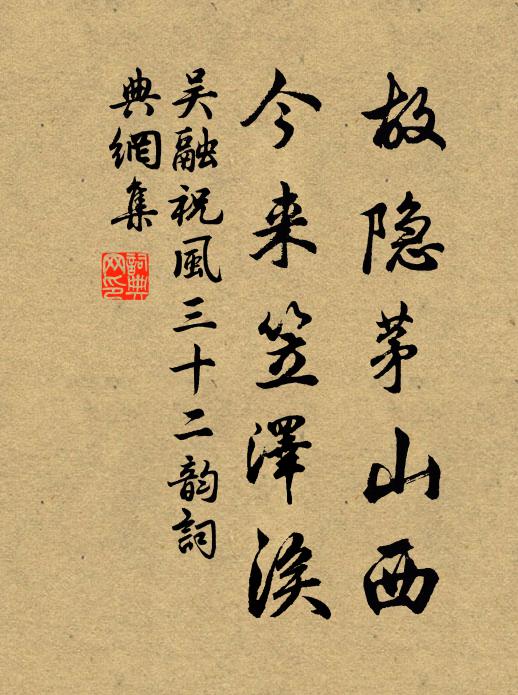 故隐茅山西
今来笠澤涘
吴融祝風三十二韵詞
典網集
詞典網印